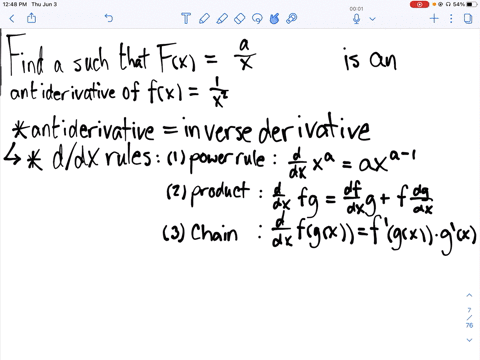 12:48 PM Thu Jun 3
00:01
54%
Find a such that F(x) = a/x is an
antiderivative of f(x) = 1/x²
*antiderivative = inverse derivative
↳* d/dx rules: (1) power rule : d/dx x^a = ax^(a-1)
(2) product : d/dx fg = df/dx g + f dg/dx
(3) Chain : d/dx f(g(x)) = f'(g(x))·g'(x)
7
/
76